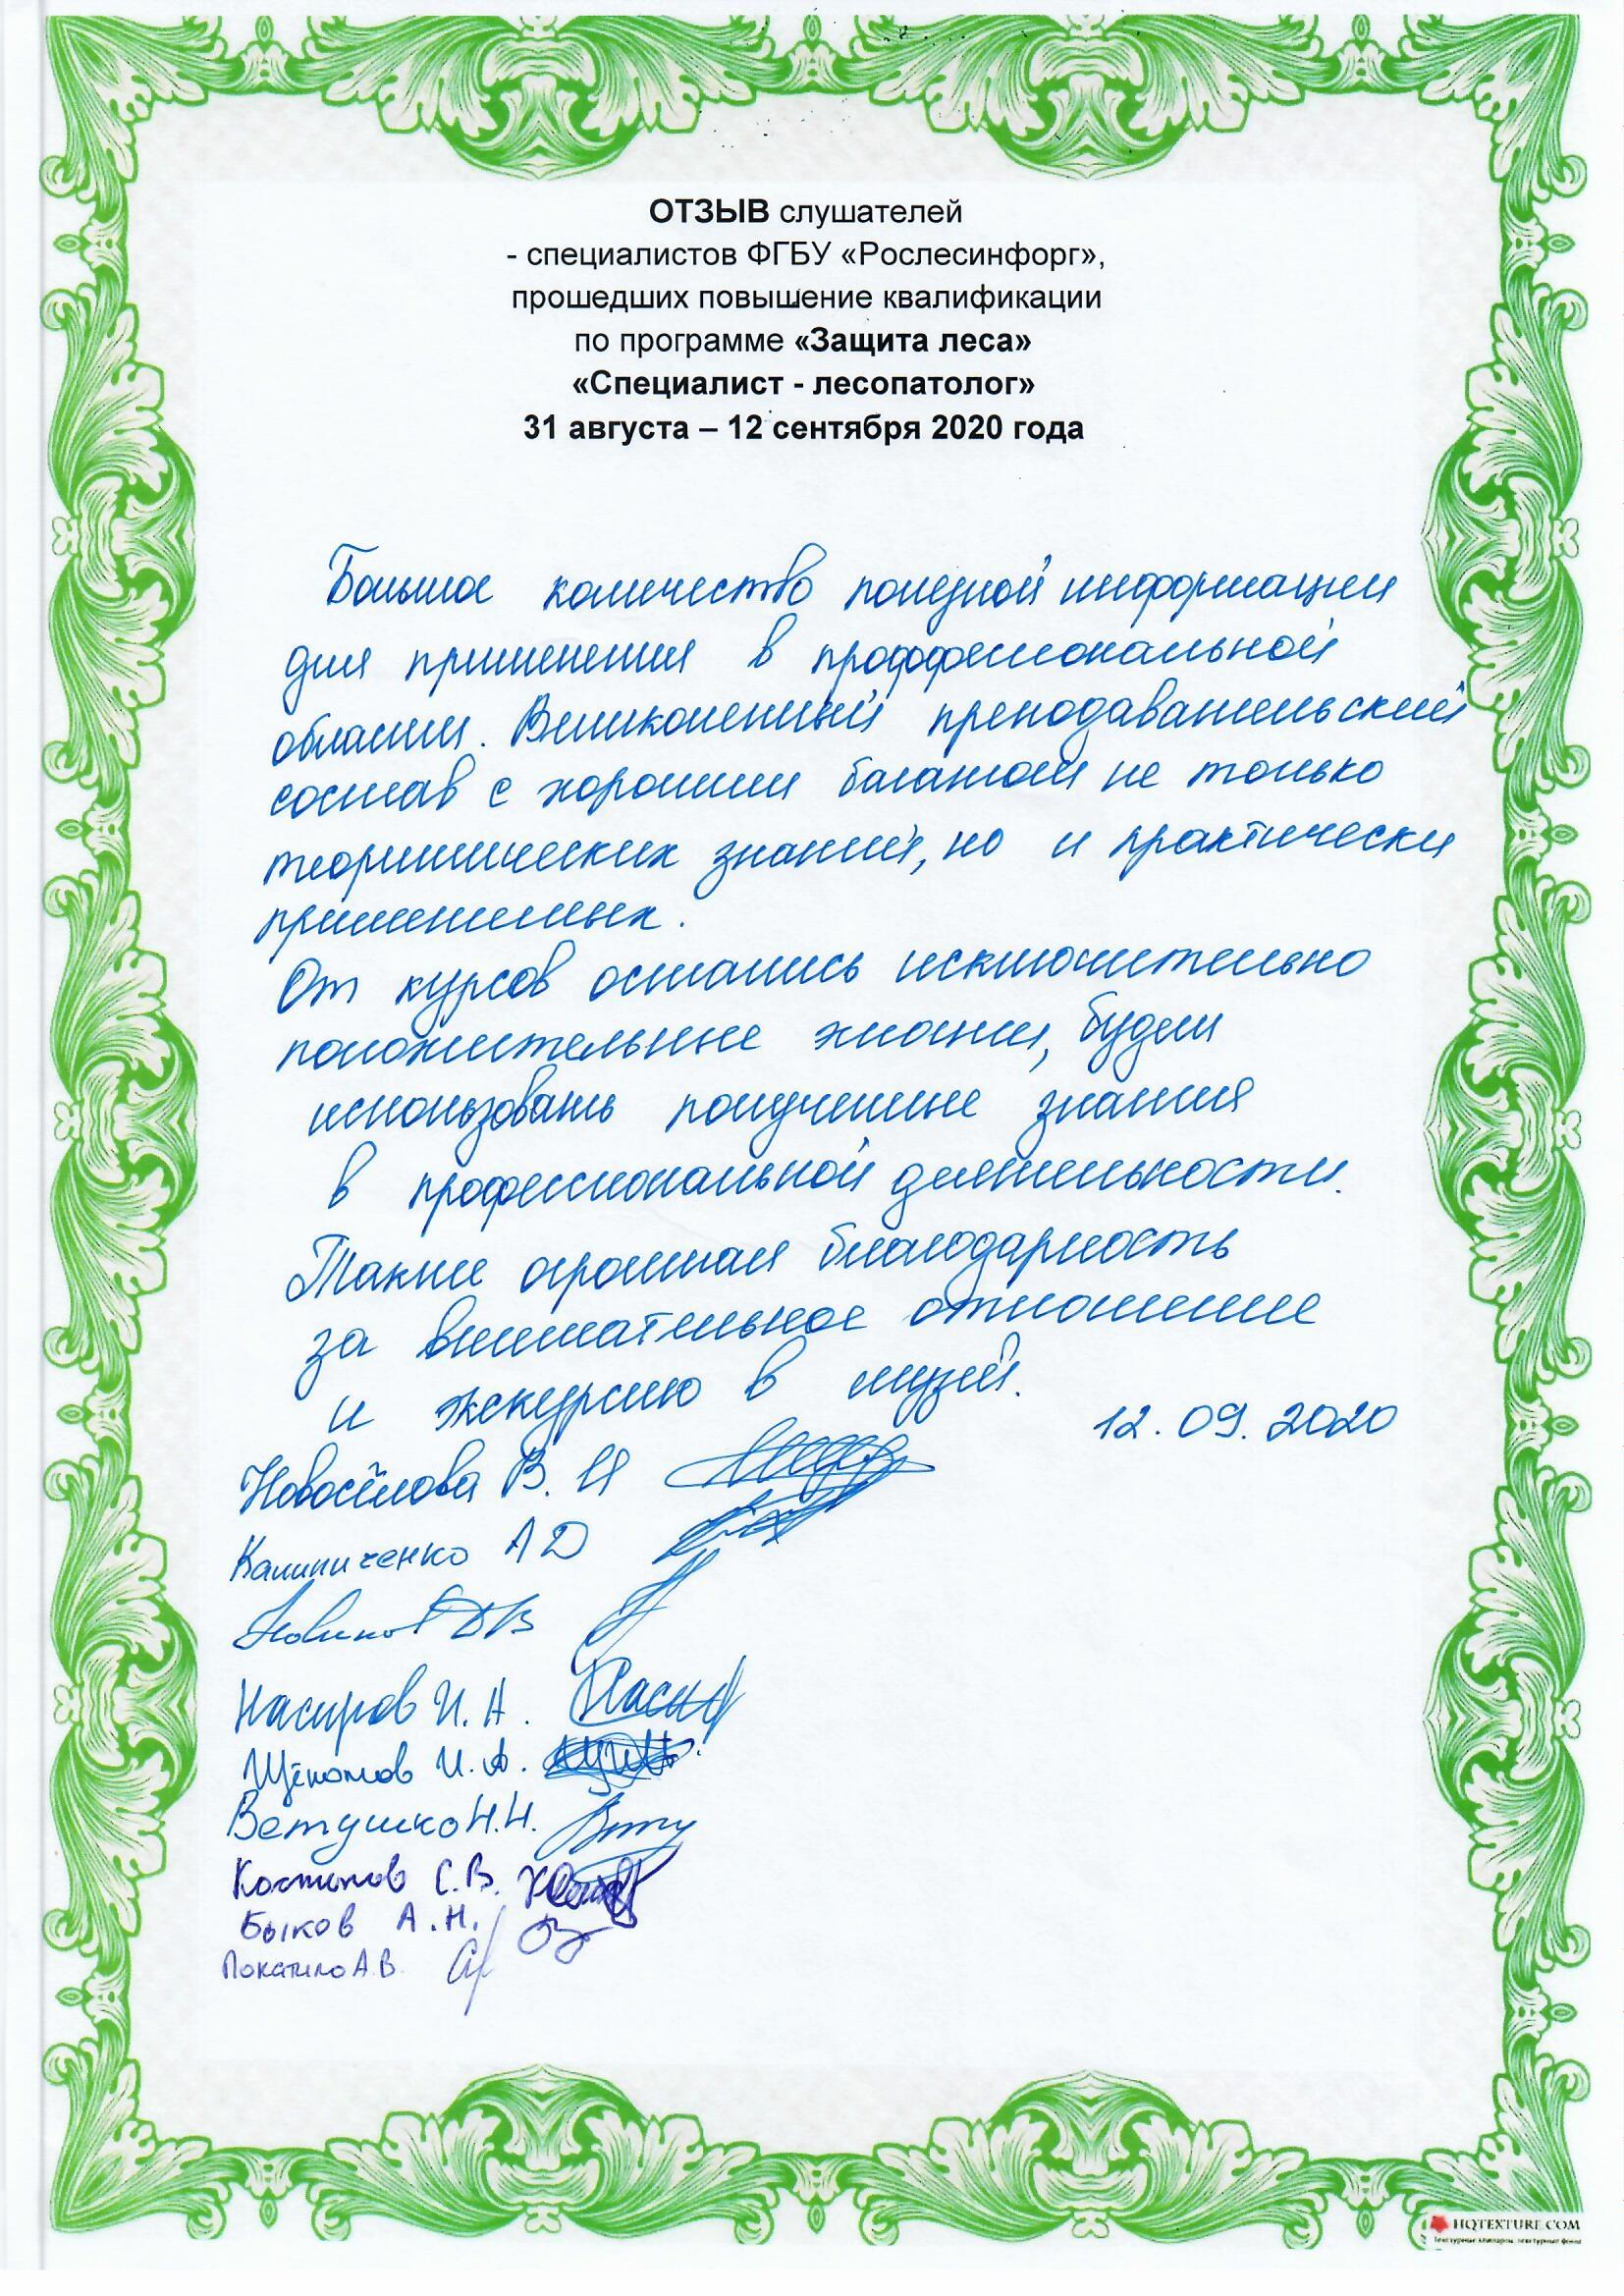 ОТЗЫВ слушателей
- специалистов ФГБУ «Рослесинфорг»,
прошедших повышение квалификации
по программе «Защита леса»
«Специалист - лесопатолог»
31 августа – 12 сентября 2020 года
Большое количество полезной информации
для применения в проффессиональной
области. Великолепный преподавательский
состав с хорошим багажом не только
теоритических знаний, но и практически
применимых.
От курсов остались исключительно
положительные эмоции, будем
использовать полученные знания
в профессиональной деятельности.
Также огромная благодарность
за внимательное отношение
и экскурсию в музей.
12.09.2020
Новосёлова В. И
Калиниченко А Д
Новиков ДВ
Насиров И. А.
Щёколов И. А.
Ветушко Н.Н.
С.В.
Быков А.Н.
Покатило А.В.
HQTEXTURE.COM